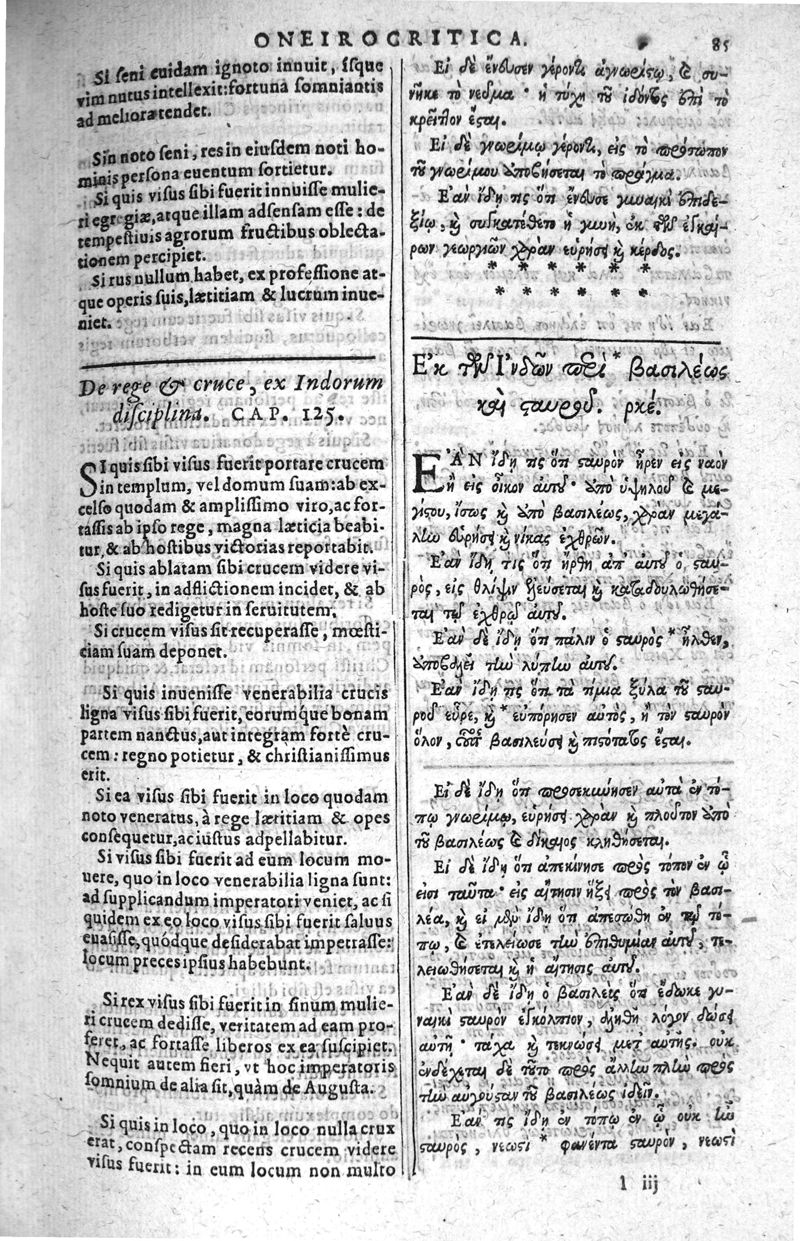 ONEIROCRITICA.
85
Si seni cuidam ignoto innuit, isque
vim nutus intellexit: fortuna somniantis
ad meliora tendet.
Sin noto seni, res in eiusdem noti ho-
minis persona euentum sortietur.
Si quis visus sibi fuerit innuisse mulie-
ri egregiæ, atque illam adsensam esse: de
tempestiuis agrorum fructibus oblecta-
tionem percipiet.
Si rus nullum habet, ex professione at-
que operis suis, lætitiam & lucrum inue-
niet.
De rege & cruce, ex Indorum
disciplina. CAP. 125.
SI quis sibi visus fuerit portare crucem
in templum, vel domum suam: ab ex-
celso quodam & amplissimo viro, ac for-
tassis ab ipso rege, magna læticia beabi-
tur, & ab hostibus victorias reportabit.
Si quis ablatam sibi crucem videre vi-
sus fuerit, in adflictionem incidet, & ab
hoste suo redigetur in seruitutem.
Si crucem visus sit recuperasse, mœsti-
ciam suam deponet.
Si quis inuenisse venerabilia crucis
ligna visus sibi fuerit, eorumque bonam
partem nanctus, aut integram fortè cru-
cem: regno potietur, & christianissimus
erit.
Si ea visus sibi fuerit in loco quodam
noto veneratus, à rege lætitiam & opes
consequetur, ac iustus adpellabitur.
Si visus sibi fuerit ad eum locum mo-
uere, quo in loco venerabilia ligna sunt:
ad supplicandum imperatori veniet, ac si
quidem ex eo loco visus sibi fuerit saluus
euasisse, quodque desiderabat impetrasse:
locum preces ipsius habebunt.
Si rex visus sibi fuerit in sinum mulie-
ri crucem dedisse, veritatem ad eam pro-
feret, ac fortasse liberos ex ea suscipiet.
Nequit autem fieri, vt hoc imperatoris
somnium de alia sit, quàm de Augusta.
Si quis in loco, quo in loco nulla crux
erat, conspectam recens crucem videre
visus fuerit: in eum locum non multo
Εἰ δὲ ἔνευσεν γέροντι ἀγνωρίστῳ, καὶ συ-
νῆκε τὸ νεῦμα· ἡ τύχη τοῦ ἰδόντος ἐπὶ τὸ
κρεῖττον ἔσται.
Εἰ δὲ γνωρίμῳ γέροντι, εἰς τὸ πρόσωπον
τοῦ γνωρίμου ἀποβήσεται τὸ πρᾶγμα.
Ἐὰν ἴδῃ τις ὅτι ἔνευσε γυναικὶ ἐπιδε-
ξίῳ, καὶ συγκατέθετο ἡ γυνὴ, ἐκ τῶν ἐγκαί-
ρων γεωργιῶν χαρὰν εὑρήσει καὶ κέρδος.
* * * * * *
* * * * * *
Ἐκ τῶν Ἰνδῶν περὶ * βασιλέως
καὶ σταυροῦ. ρκέ.
ἘΑΝ ἴδῃ τις ὅτι σταυρὸν ἦρεν εἰς ναὸν
ἢ εἰς οἶκον αὐτοῦ· ἀπὸ ὑψηλοῦ καὶ με-
γίστου, ἴσως καὶ ἀπὸ βασιλέως, χαρὰν μεγά-
λην εὑρήσει καὶ νίκας ἐχθρῶν.
Ἐὰν ἴδῃ τις ὅτι ἤρθη ἀπ' αὐτοῦ ὁ σταυ-
ρὸς, εἰς θλίψιν ἐλεύσεται καὶ καταδουλωθήσε-
ται τῷ ἐχθρῷ αὐτοῦ.
Ἐὰν δὲ ἴδῃ ὅτι πάλιν ὁ σταυρὸς * ἦλθεν,
ἀποβαλεῖ τὴν λύπην αὐτοῦ.
Ἐὰν ἴδῃ τις ὅτι τὰ τίμια ξύλα τοῦ σταυ-
ροῦ εὗρε, καὶ * εὐπόρησεν αὐτὸς, ἢ τὸν σταυρὸν
ὅλον, οὗτος βασιλεύσει καὶ πιστότατος ἔσται.
Εἰ δὲ ἴδῃ ὅτι προσεκύνησεν αὐτὰ ἐν τό-
πῳ γνωρίμῳ, εὑρήσει χαρὰν καὶ πλοῦτον ἀπὸ
τοῦ βασιλέως καὶ δίκαιος κληθήσεται.
Εἰ δὲ ἴδῃ ὅτι ἀπεκίνησε πρὸς τόπον ἐν ᾧ
εἰσι ταῦτα· εἰς αἴτησιν ἥξει πρὸς τὸν βασι-
λέα, καὶ εἰ μὲν ἴδῃ ὅτι ἀπεσώθη ἐν τῷ τό-
πῳ, καὶ ἐτελείωσε τὴν ἐπιθυμίαν αὐτοῦ, τε-
λειωθήσεται καὶ ἡ αἴτησις αὐτοῦ.
Ἐὰν δὲ ἴδῃ ὁ βασιλεὺς ὅτι ἔδωκε γυ-
ναικὶ σταυρὸν ἐγκόλπιον, ἀληθῆ λόγον δώσει
αὐτῇ· τάχα καὶ τεκνώσει μετ' αὐτῆς. οὐκ
ἐνδέχεται δὲ τοῦτο πρὸς ἄλλην πλὴν πρὸς
τὴν αὐγούσταν τοῦ βασιλέως ἰδεῖν.
Ἐάν τις ἴδῃ ἐν τόπῳ ἐν ᾧ οὐκ ἦν
σταυρὸς, νεωστὶ * φανέντα σταυρὸν, νεωστὶ
l iij